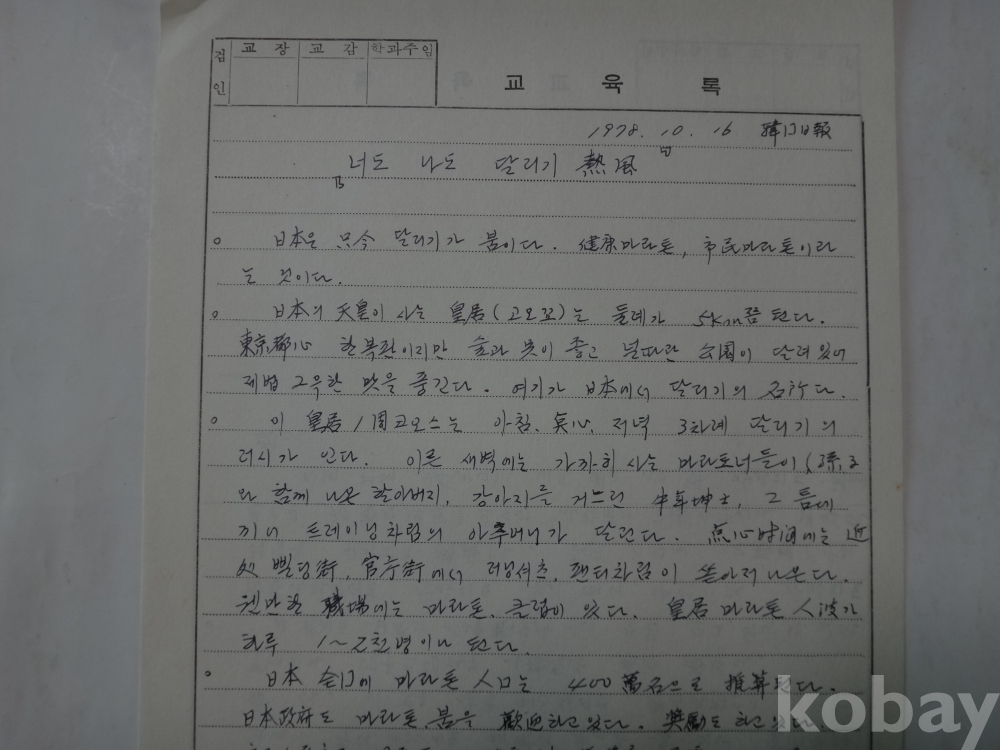 검인 교장 교감 학과주임
교육록
1978. 10. 16 韓国日報
너도 나도 달리기 熱風
○ 日本은 只今 달리기가 붐이다. 健康마라톤, 市民마라톤이라
는 것이다.
○ 日本의 天皇이 사는 皇居(고오꾜)는 둘레가 5km쯤 된다.
東京都心 한복판이지만 숲과 못이 좋고 널따란 公園이 달려 있어
제법 그윽한 맛을 풍긴다. 여기가 日本에서 달리기의 名所다.
○ 이 皇居 1周코오스는 아침, 点心, 저녁 3차례 달리기의
러시가 인다. 이른 새벽에는 가까히 사는 마라토너들이 孫子
와 함께 나온 할아버지, 강아지를 거느린 中年紳士, 그 틈에
끼어 트레이닝차림의 아주머니가 달린다. 点心时间에는 近
処 삘딩街, 官庁街에서 러닝셔츠, 팬티차림이 쏟아저 나온다.
웬만한 職場에는 마라톤, 클럽이 있다. 皇居 마라톤 人波가
하루 1~2천명이나 된다.
○ 日本 全国에 마라톤 人口는 400萬名으로 推算된다.
日本政府도 마라톤, 붐을 歡迎하고 있다. 奬勵도 하고 있다.
kobay